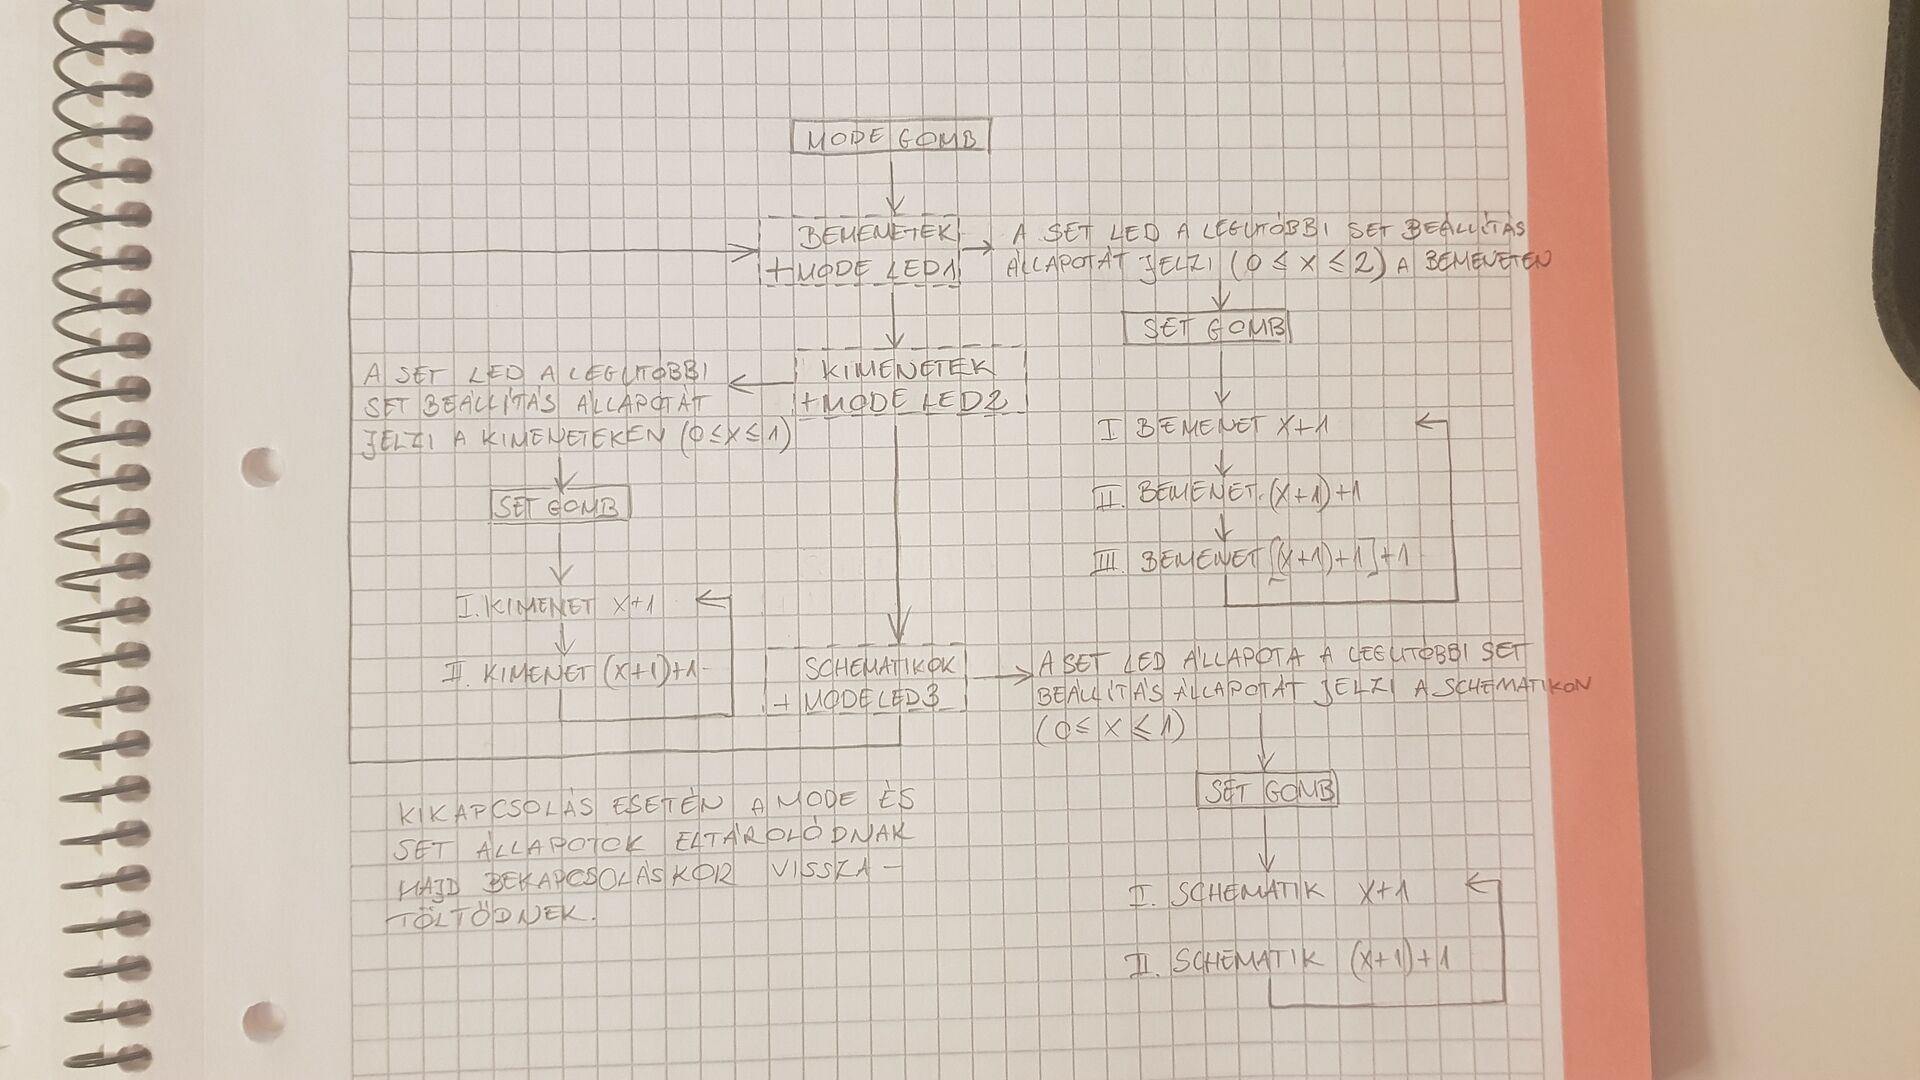 MODE GOMB
BEMENETEK
+MODE LED1
A SET LED A LEGUTÓBBI SET BEÁLLÍTÁS
ÁLLAPOTÁT JELZI (0 ≤ x ≤ 2) A BEMENETEN
SET GOMB
I BEMENET X+1
II. BEMENET (X+1)+1
III. BEMENET [(X+1)+1]+1
KIMENETEK
+MODE LED2
A SET LED A LEGUTÓBBI
SET BEÁLLÍTÁS ÁLLAPOTÁT
JELZI A KIMENETEKEN (0≤X≤1)
SET GOMB
I. KIMENET X+1
II. KIMENET (X+1)+1
SCHEMATIKOK
+ MODE LED3
A SET LED ÁLLAPOTA A LEGUTÓBBI SET
BEÁLLÍTÁS ÁLLAPOTÁT JELZI A SCHEMATIKON
(0 ≤ X ≤ 1)
SET GOMB
I. SCHEMATIK X+1
II. SCHEMATIK (X+1)+1
KIKAPCSOLÁS ESETÉN A MODE ÉS
SET ÁLLAPOTOK ELTÁROLÓDNAK
MAJD BEKAPCSOLÁSKOR VISSZA-
TÖLTŐDNEK.